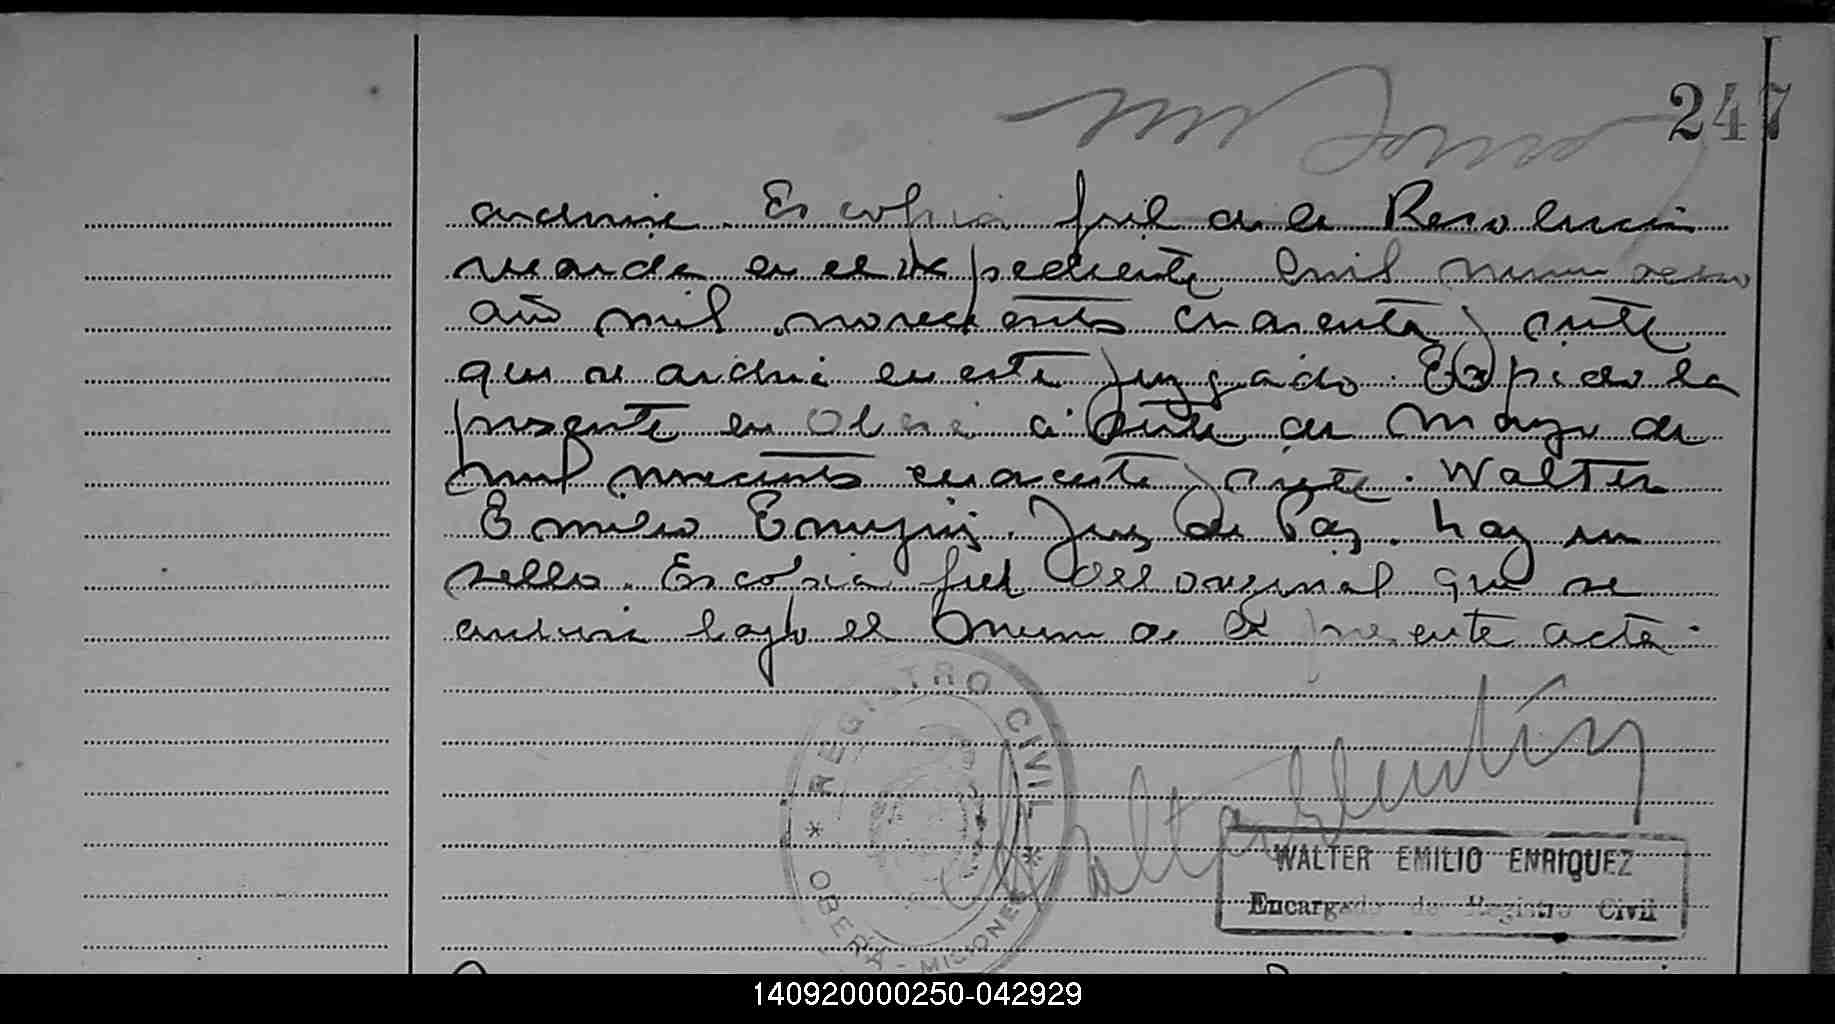 247
archive. Es copia fiel de la Resolución
recaída en el expediente Civil
año mil novecientos cuarenta y siete
que se archiva en este Juzgado. Expido la
presente en Oberá a siete de mayo de
mil novecientos cuarenta y siete. Walter
Emilio Enriquez. Juez de Paz. hay un
sello. Es copia fiel del original que se
archiva bajo el número de la presente acta.
REGISTRO CIVIL
* OBERA - MISIONES *
WALTER EMILIO ENRIQUEZ
Encargado de Registro Civil
140920000250-042929